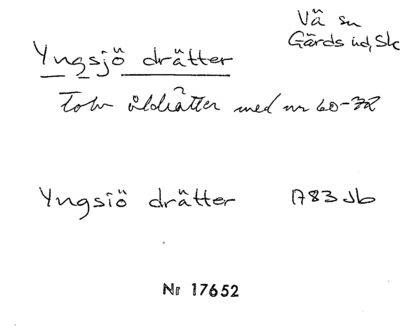 Vä sn
Gärds hd, Sk
Yngsjö drätter
Tolv åldrätter med nr 60-72
Yngsiö drätter 1783 Jb
Nr 17652